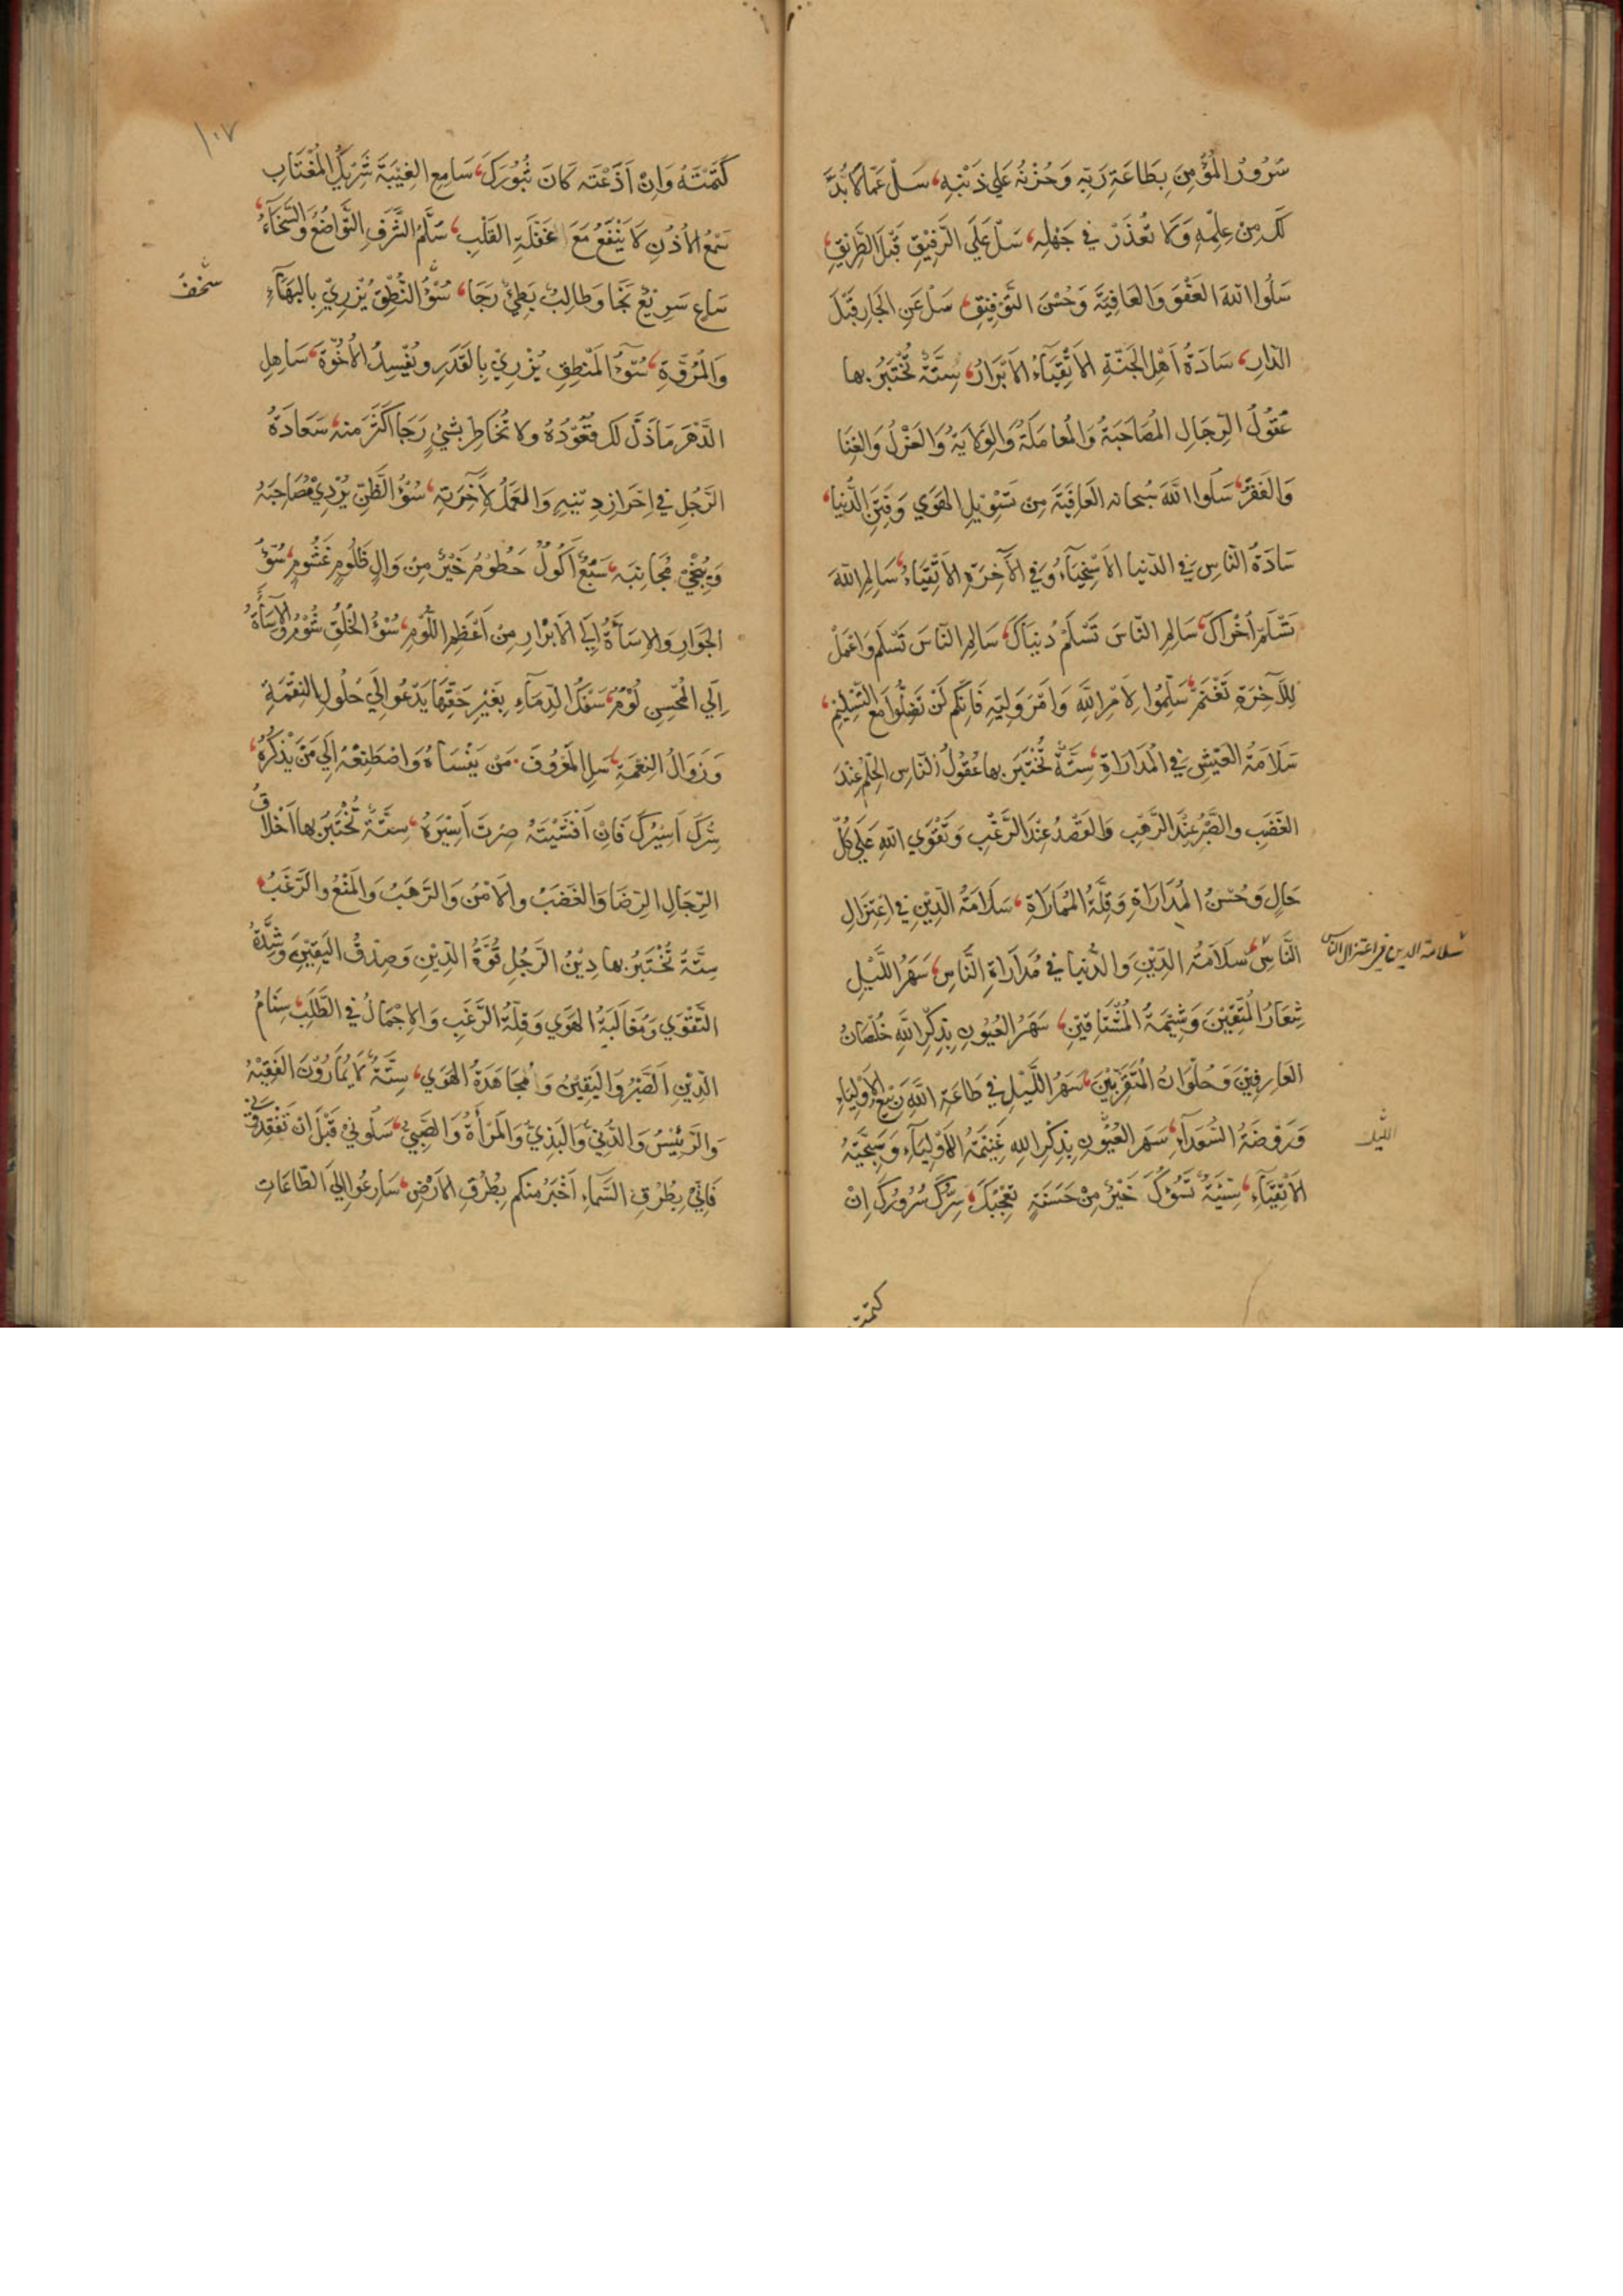 سُرُورُ الْمُؤْمِنِ بِطَاعَةِ رَبِّهِ وَحُزْنُهُ عَلَي ذَنْبِهِ، سَلْ عَمَّا لَا بُدَّ
لَكَ مِنْ عِلْمِهِ وَلَا تُعْذَرُ فِي جَهْلِهِ، سَلْ عَلَي الرَّفِيْقِ قَبْلَ الطَّرِيْقِ،
سَلُوا اللهَ العَفْوَ وَالعَافِيَةَ وَحُسْنَ التَّوْفِيْقِ، سَلْ عَنِ الجَارِ قَبْلَ
الدَّارِ، سَادَةُ اَهْلِ الجَنَّةِ الاَتْقِيَاءُ الاَبْرَارُ، سِتَّةٌ تُخْتَبَرُ بها
عُقُولُ الرِّجَالِ المُصَاحَبَةُ وَالمُعَامَلَةُ وَالوِلَايَةُ وَالعَزْلُ وَالغِنَا
وَالفَقْرُ، سَلُوا اللهَ سُبحانه العَافِيَةَ مِن تَسْوِيْلِ الهَوَي وَفِتَنِ الدُّنيا،
سَادَةُ النَّاسِ فِي الدّنيا الاَسْخِيَاءُ وَفِي الآخِرَةِ الاَتْقِيَاءُ، سَالِمِ اللهَ
تَسْلَمْ اُخْرَاكَ، سَالِمِ النَّاسَ تَسْلَمْ دُنيَاكَ، سَالِمِ النَّاسَ تَسْلَم وَاعْمَلْ
لِلآخِرَةِ تَغْنَمْ، سَلِّمُوا لِاَمْرِ اللهِ وَاَمْرِ وَلِيِّهِ فَاِنَّكُم لَنْ تَضِلُّوا مَعَ التَّسْلِيْمِ،
سَلَامَةُ العَيْشِ فِي المُدَارَاةِ، سِتَّةٌ تُخْتَبَرُ بها عُقُولُ النَّاسِ الحِلْمُ عِنْدَ
الغَضَبِ والصَّبْرُ عِنْدَ الرَّهَبِ وَالقَصْدُ عِنْدَ الرَّغْبِ وَتَقْوَي اللهِ عَلَي كُلِّ
حَالٍ وَحُسْنُ المُدَارَاةِ وَقِلَّةُ المُمَارَاةِ، سَلَامَةُ الدِّيْنِ فِي اعْتِزَالِ
النَّاسِ، سَلَامَةُ الدِّيْنِ وَالدُّنيا فِي مُدَارَاةِ النَّاسِ، سَهَرُ اللَّيْلِ
شِعَارُ المُتَّقِيْنَ وَشِيْمَةُ المُشْتَاقِيْنَ، سَهَرُ العُيُونِ بِذِكْرِ اللهِ خُلْصَانُ
العَارِفِيْنَ وَحُلْوَانُ المُتَقَرِّبِيْنَ، سَهَرُ اللَّيْلِ فِي طَاعَةِ اللهِ رَبِيْعُ الاَوْلِيَاءِ
وَرَوْضَةُ السُّعَدَاءِ، سَهَر العُيُونِ بِذِكْرِ اللهِ غَنِيْمَةُ الاَوْلِيَاءِ وَسَجِيَّةُ
الاَتْقِيَاءِ، سَيِّئَةٌ تَسُؤُكَ خَيْرٌ مِنْ حَسَنَةٍ تُعْجِبُكَ، سِرُّكَ سُرُورُكَ اِنْ
سلامة الدين في اعتزال الناس
الليل
كتمته
١٠٧
كَتَمْتَهُ وَاِنْ اَذَعْتَه كَانَ ثُبُورَكَ، سَامِعِ الغِيْبَةَ شَرِيْكُ المُغْتَابِ
سَمْعُ الاُذُنِ لَا يَنْفَعُ مَعَ غَفْلَةِ القَلْبِ، سُلَّمُ الشَّرَفِ التَّوَاضُعُ وَالسَّخَاءُ،
سَاعٍ سَرِيْعٌ نَجَا وَطَالِبٌ بَطِيٌ رَجَا، سُوْءُ النُّطْقِ يُزْرِيْ بِالبَهَاءِ
وَالمُرُوَّةِ، سُوْءُ المَنْطِقِ يُزْرِيْ بِالقَدَرِ وَيُفْسِدُ الاُخُوَّةَ، سَاهِلِ
الدَّهْرَ مَا ذَلَّ لَكَ قَعُوْدُهُ ولا تُخَاطِر بشيٍ رَجَا اَكْثَرَ منه، سَعَادَةُ
الرَّجُلِ فِي اِحْرَازِ دِيْنِهِ وَالعَمَلُ لِآخِرَتِهِ، سُوْءُ الظَّنِّ يُرْدِيْ مُصَاحِبَهُ
وَيُنْجِيْ مُجَانِبَه، سَبُعٌ اَكُولٌ حَطُومٌ خَيْرٌ مِنْ وَالٍ ظَلُومٍ غَشُومٍ، سُوْءُ
الجَوَارِ وَالاِسَاءَةُ اِلَي الاَبْرَارِ مِنْ اَعْظَمِ اللُّؤْمِ، سُوْءُ الخُلُقِ شُوْمٌ وَالاِسَاءَةُ
اِلَي المُحْسِنِ لُوْمٌ، سَفْكُ الدِّمَاءِ بِغَيْرِ حَقِّهَا يَدْعُو اِلَي حُلُولِ النِّقْمَةِ
وَزَوَالُ النِّعْمَةِ، سَلِ المَعْرُوفَ مَن يَنْسَاهُ وَاصْطَنِعْهُ اِلَي مَنْ يَذْكُرُهُ،
سِرُّكَ اَسِيْرُكَ فَاِنْ اَفْشَيْتَهُ صِرْتَ اَسِيْرَهُ، سِتَّةٌ تُخْتَبَرُ بها اَخْلَاقُ
الرِّجَالِ الرِّضَا وَالغَضَبُ والاَمْنُ وَالرَّهَبُ وَالمَنْعُ والرَّغَبُ،
سِتَّةٌ تُخْتَبَرُ بها دِيْنُ الرَّجُلِ قُوَّةُ الدِّيْنِ وَصِدْقُ اليَقِيْنِ وَشِدَّةُ
التَّقْوَي وَمُغَالَبَةُ الهَوَي وَقِلَّةُ الرَّغَبِ وَالاِجْمَالُ فِي الطَّلَبِ، سِنَامُ
الدِّيْنِ الصَّبْرُ وَاليَقِيْنُ وَمُجَاهَدَةُ الهَوَي، سِتَّةٌ لَا يُمَارَوْنَ الفَقِيْهُ
وَالرَّئِيْسُ وَالدَّنِيُّ وَالبَذِيُّ وَالمَرْأَةُ وَالصَّبِيُّ، سَلُونِيْ قَبْلَ اَنْ تَفْقِدُوْنِي
فَاِنِّيْ بِطُرُقِ السَّمَاءِ اَخْبَرُ مِنكم بِطُرُقِ الاَرْضِ، سَارِعُوا اِلَي الطَّاعَاتِ
سخف